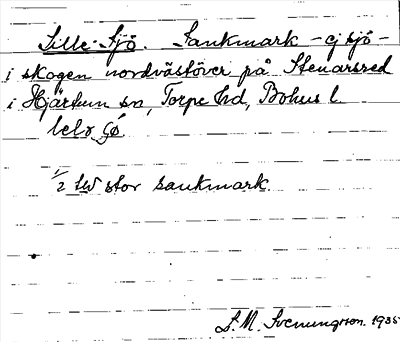 Lille-Sjö. Sankmark - ej sjö -
i skogen nordvästöver på Stenarsred
i Hjärtum sn, Torpe hd, Bohus l.
½ tld stor sankmark.
S. M. Svenungsson. 1935